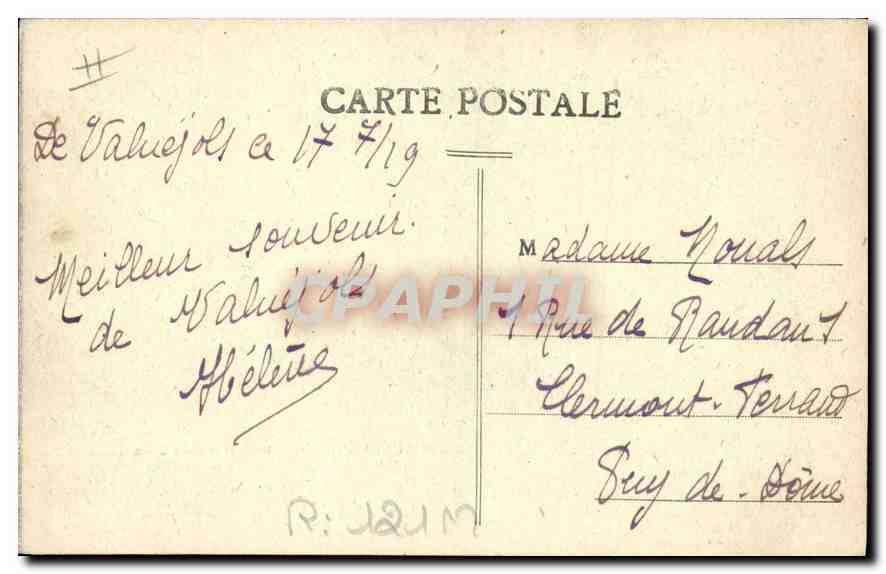 CARTE POSTALE
De Valuéjols ce 17 7/19
Meilleur souvenir.
de Valuéjols
Hélène
Madame Nouals
1 Rue de Randan 1
Clermont-Ferrand
Puy de-Dôme
CPAPHIL
R: 121M